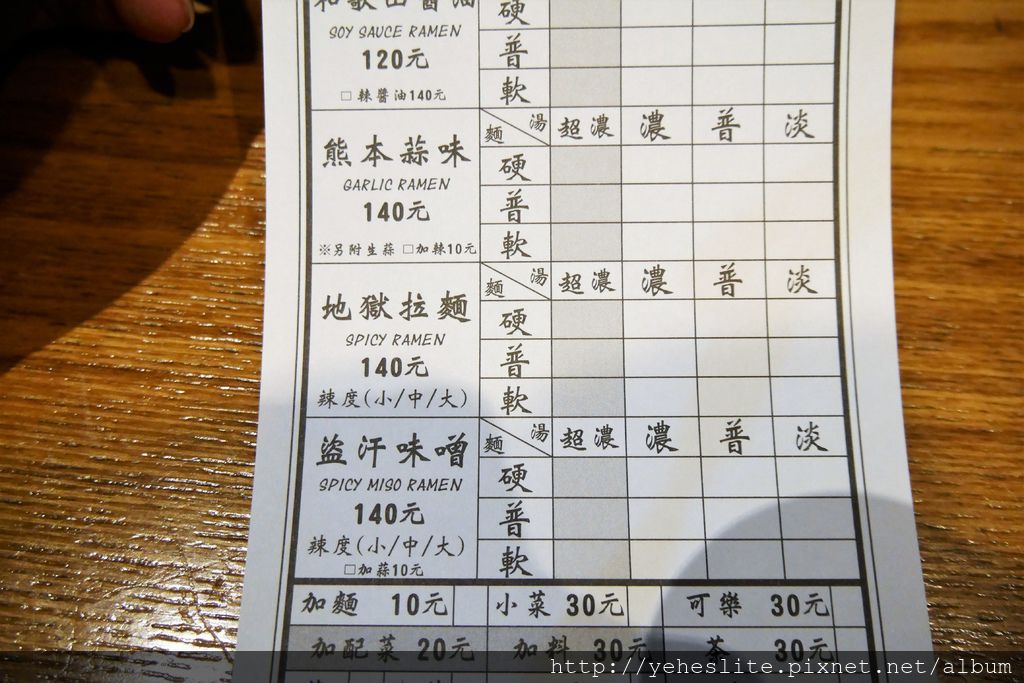 和歌山醬油
SOY SAUCE RAMEN
120元
□ 辣醬油140元
硬
普
軟
熊本蒜味
GARLIC RAMEN
140元
※另附生蒜 □加辣10元
麵 湯 超濃 濃 普 淡
硬
普
軟
地獄拉麵
SPICY RAMEN
140元
辣度(小/中/大)
麵 湯 超濃 濃 普 淡
硬
普
軟
盜汗味噌
SPICY MISO RAMEN
140元
辣度(小/中/大)
□加蒜10元
麵 湯 超濃 濃 普 淡
硬
普
軟
加麵 10元 小菜 30元 可樂 30元
加配菜 20元 加料 30元 茶 30元
http://yeheslite.pixnet.net/album